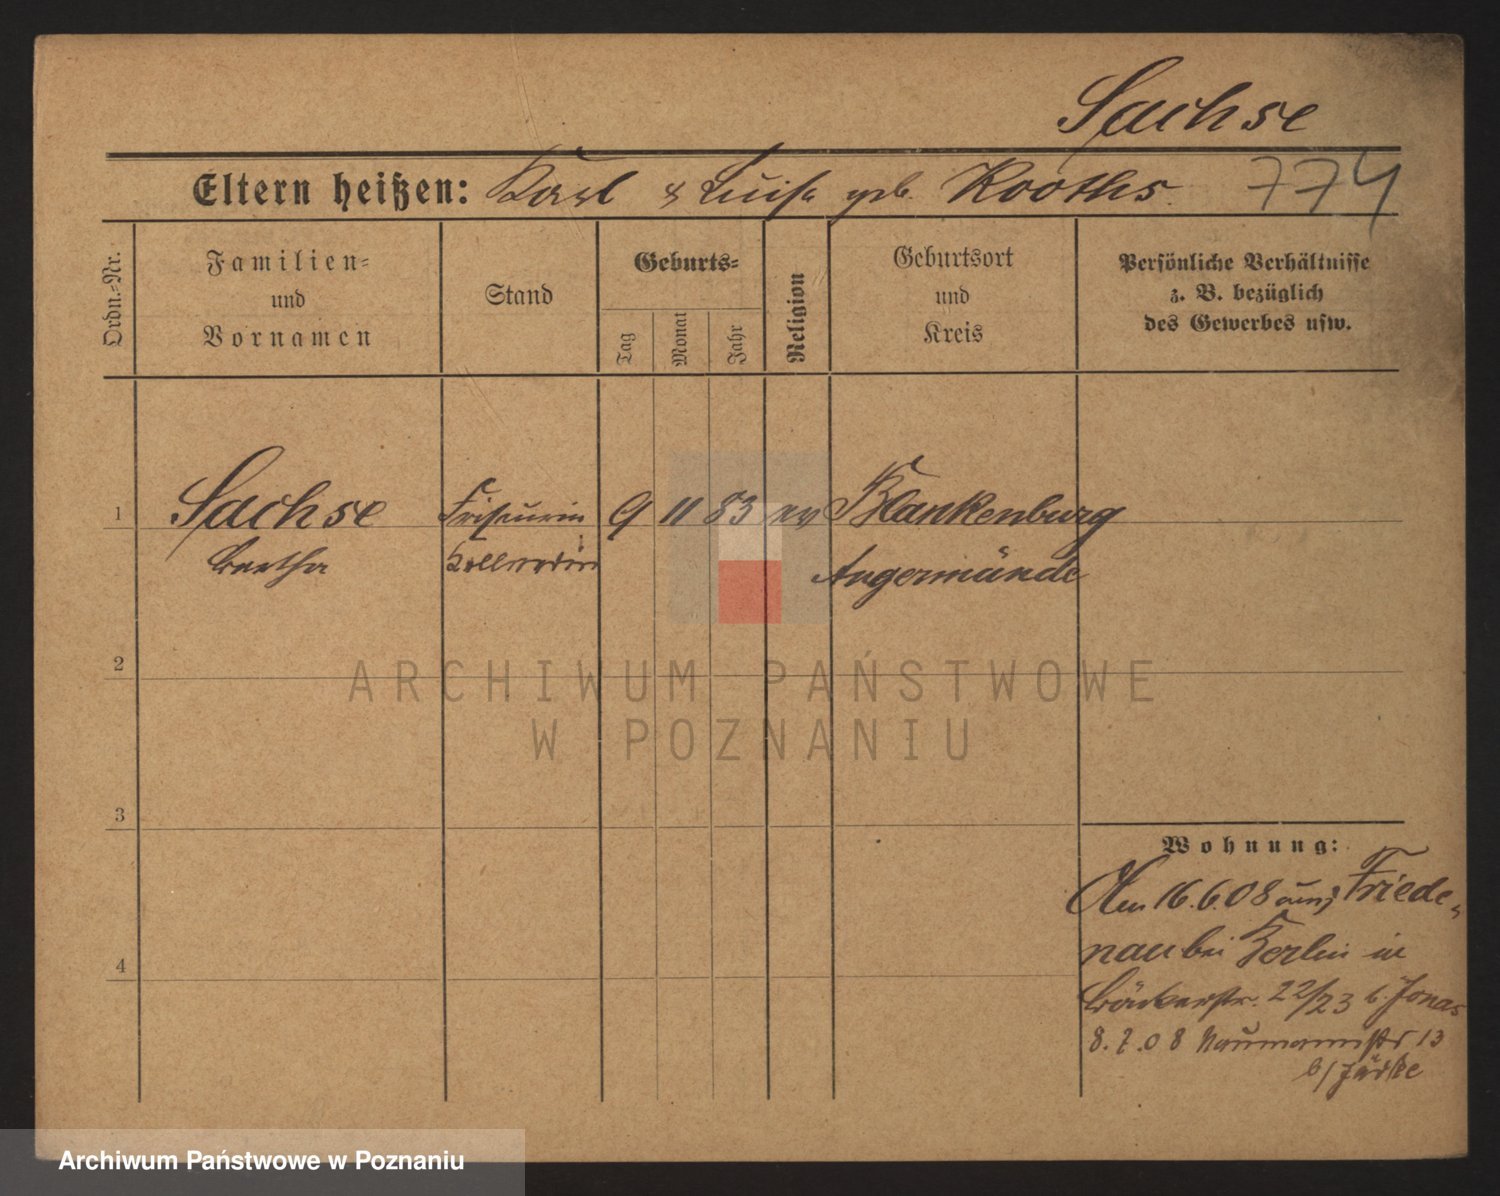 Sachse
Eltern heißen: Karl & Luise geb. Kooths
774
Ordn.-Nr.
Familien-
und
Vornamen
Stand
Geburts-
Tag
Monat
Jahr
Religion
Geburtsort
und
Kreis
Persönliche Verhältnisse
z. B. bezüglich
des Gewerbes usw.
1
Sachse Friseurin 9 11 83 ev Blankenburg
Bertha Kellnerin Angermünde
2
ARCHIWUM PAŃSTWOWE
W POZNANIU
3
Wohnung:
Am 16.6.08 Friede-
nau bei Berlin in
22/23 b. Jonas
4
8.7.08 Naumannstr 13
b/
Archiwum Państwowe w Poznaniu